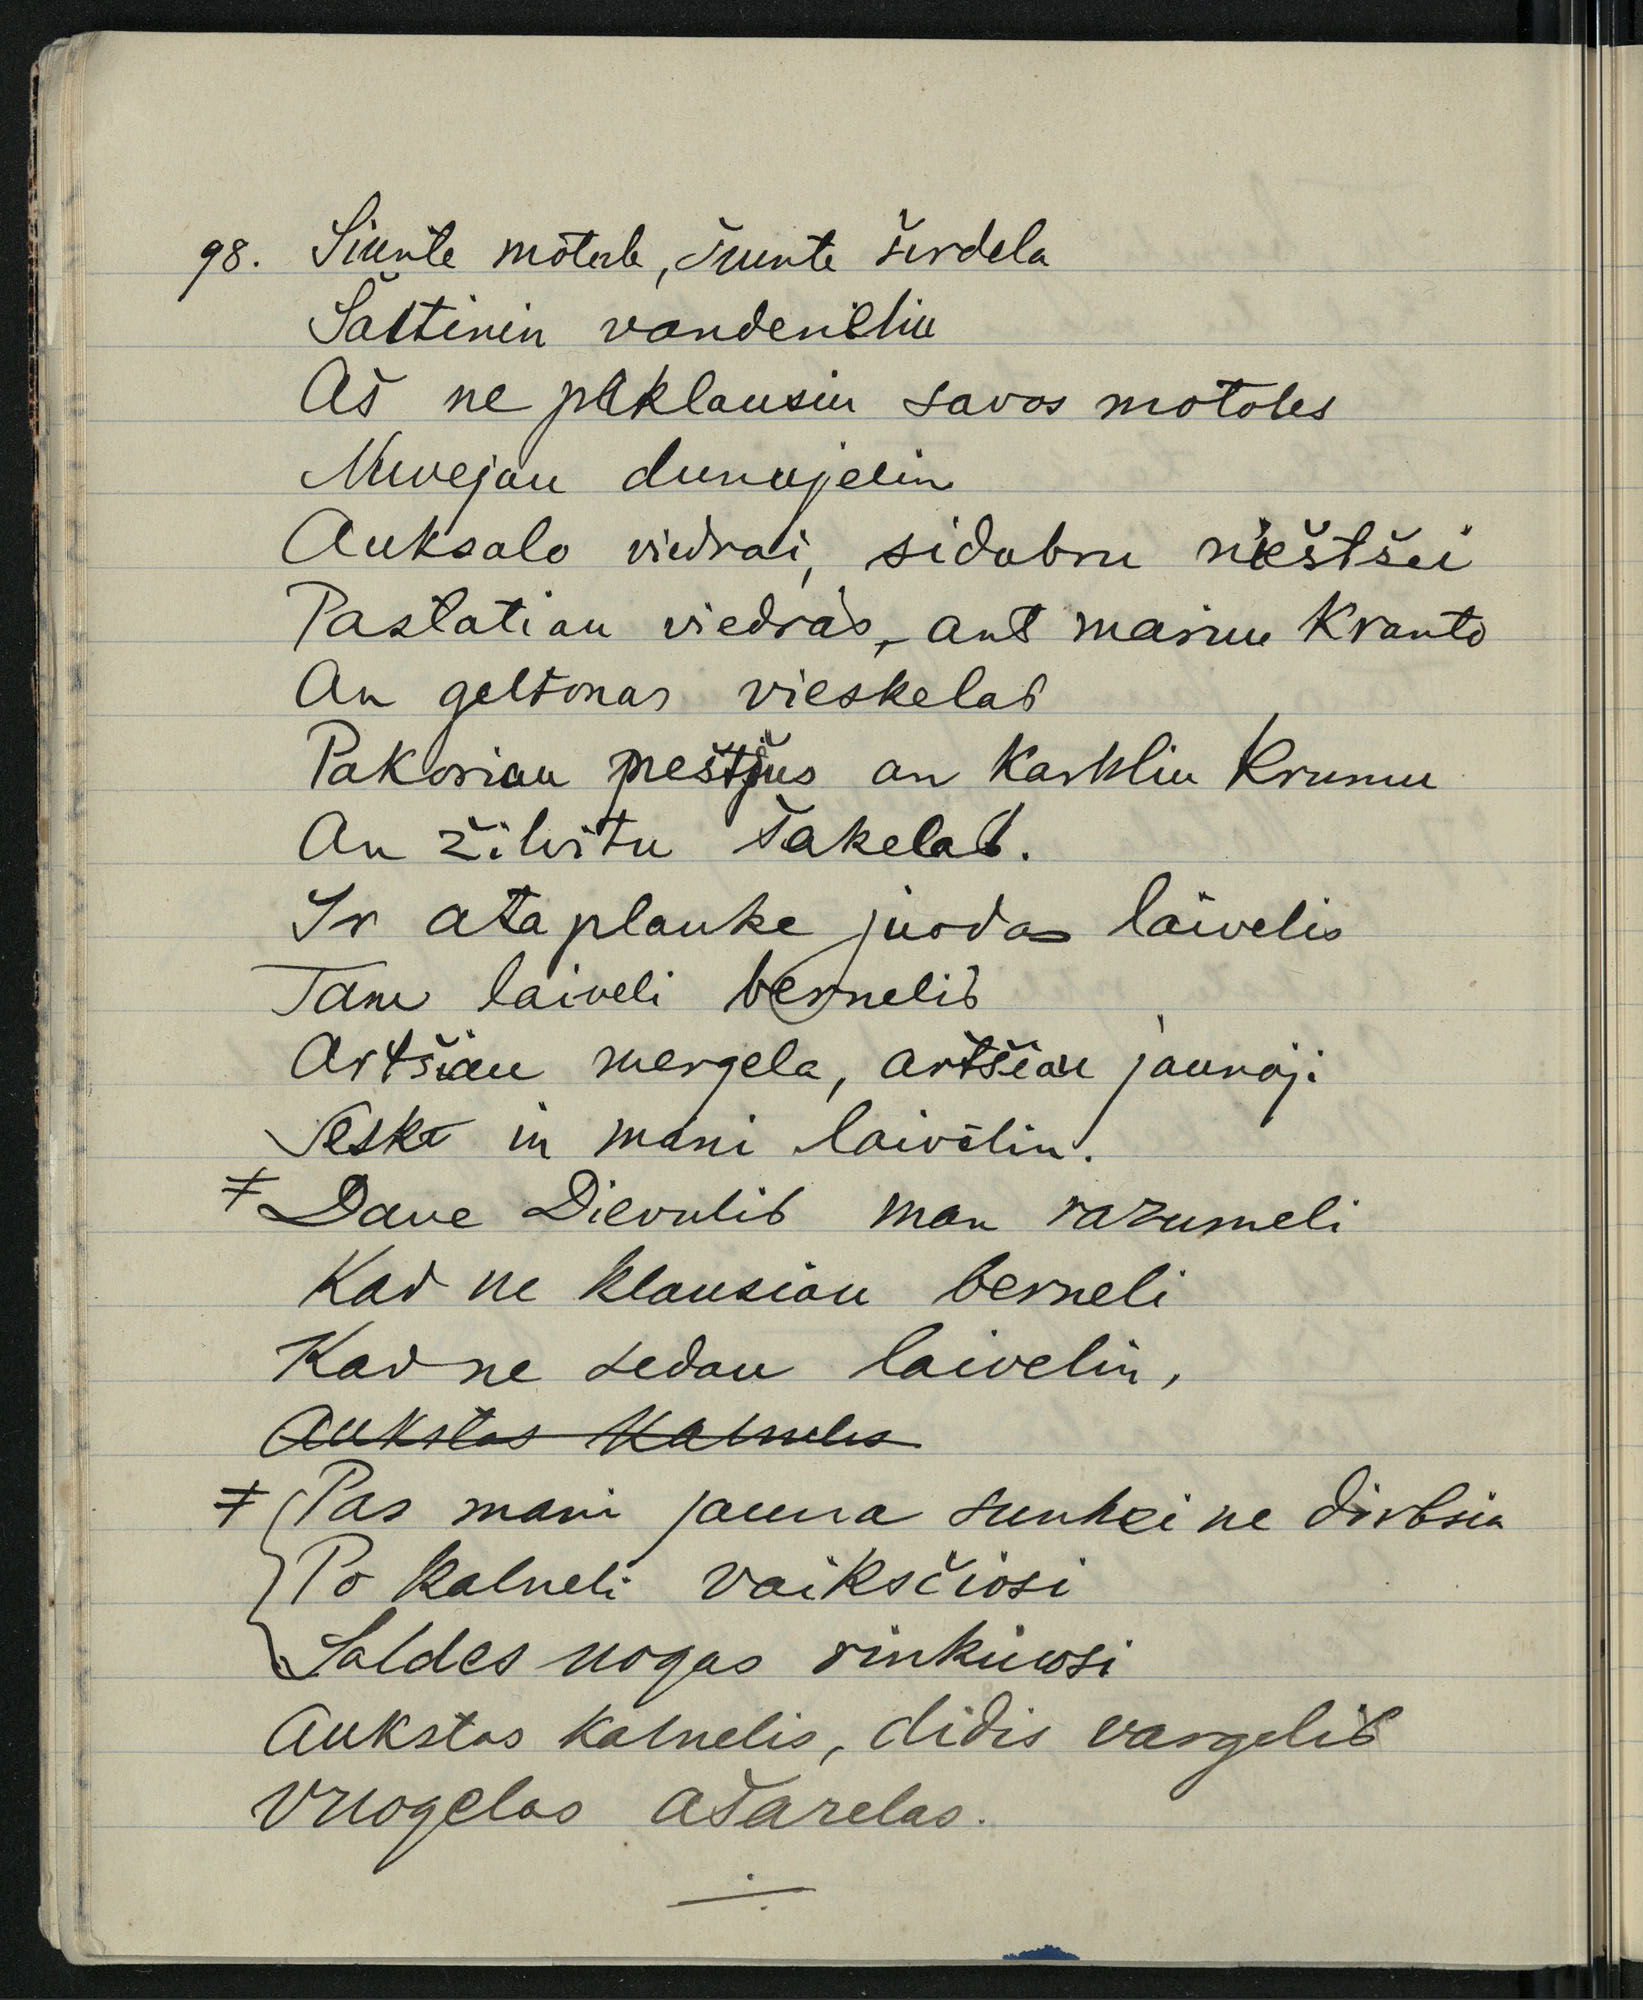 98. Siunte motule, siunte širdela
Šaltinin vandenėliu
Aš ne paklausiu savos motoles
Nuvejau dunojelin
Auksalo viedrai, sidabru niеštšei
Pastatiau viedras, ant mariu kranto
An geltonas vieskelas
Pakoriau neštšius an karkliu krumu
An žilvitu šakelas.
Ir ataplauke juodas laivelis
Tam laiveli bernelis
Artšiau mergela, artšiau jaunoji
Seske in mani laivelin.
≠ Dave Dievulis man razumeli
Kad ne klausiau berneli
Kad ne sedau laivelin,
Aukstas kalnelis
≠ Pas mani jauna sunkei ne dirbsia
Po kalneli vaiksčiosi
Saldes uogas rinkiuosi
Aukstas kalnelis, didis vargelis
Vuogelas ašarelas.